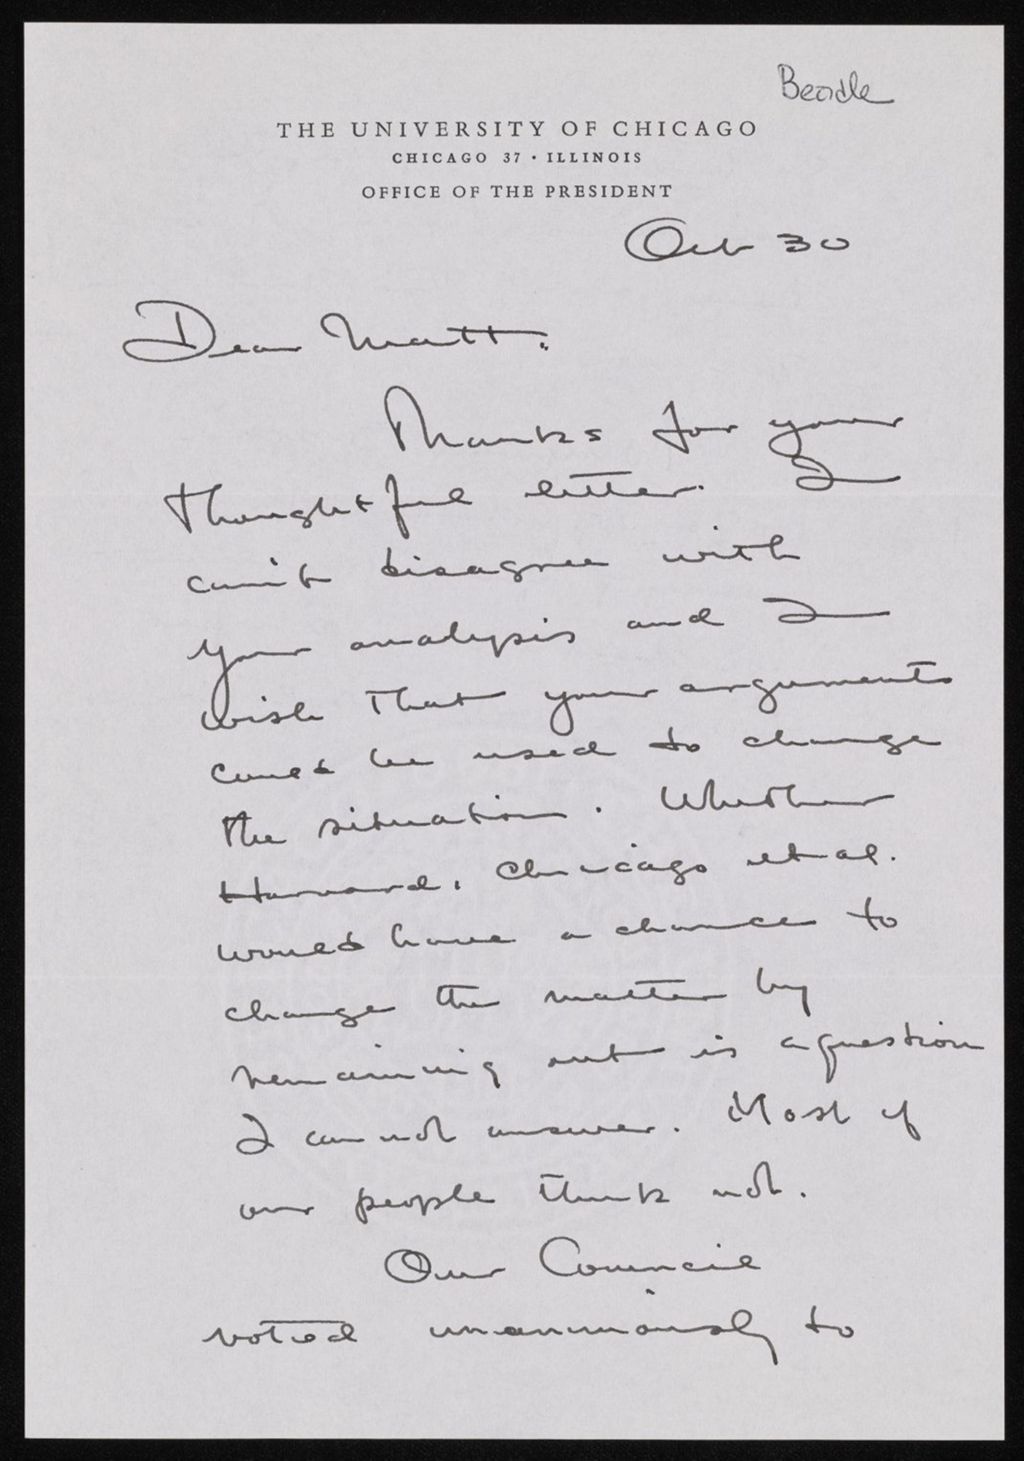 Beadle
THE UNIVERSITY OF CHICAGO
CHICAGO 37 • ILLINOIS
OFFICE OF THE PRESIDENT
Oct 30
Dear Matt:
Thanks for your
thoughtful letter. I
can't disagree with
your analysis and I
wish that your arguments
could be used to change
the situation. Whether
Harvard, Chicago et al.
would have a chance to
change the matter by
remaining out is a question
I cannot answer. Most of
our people think not.
Our Council
voted unanimously to